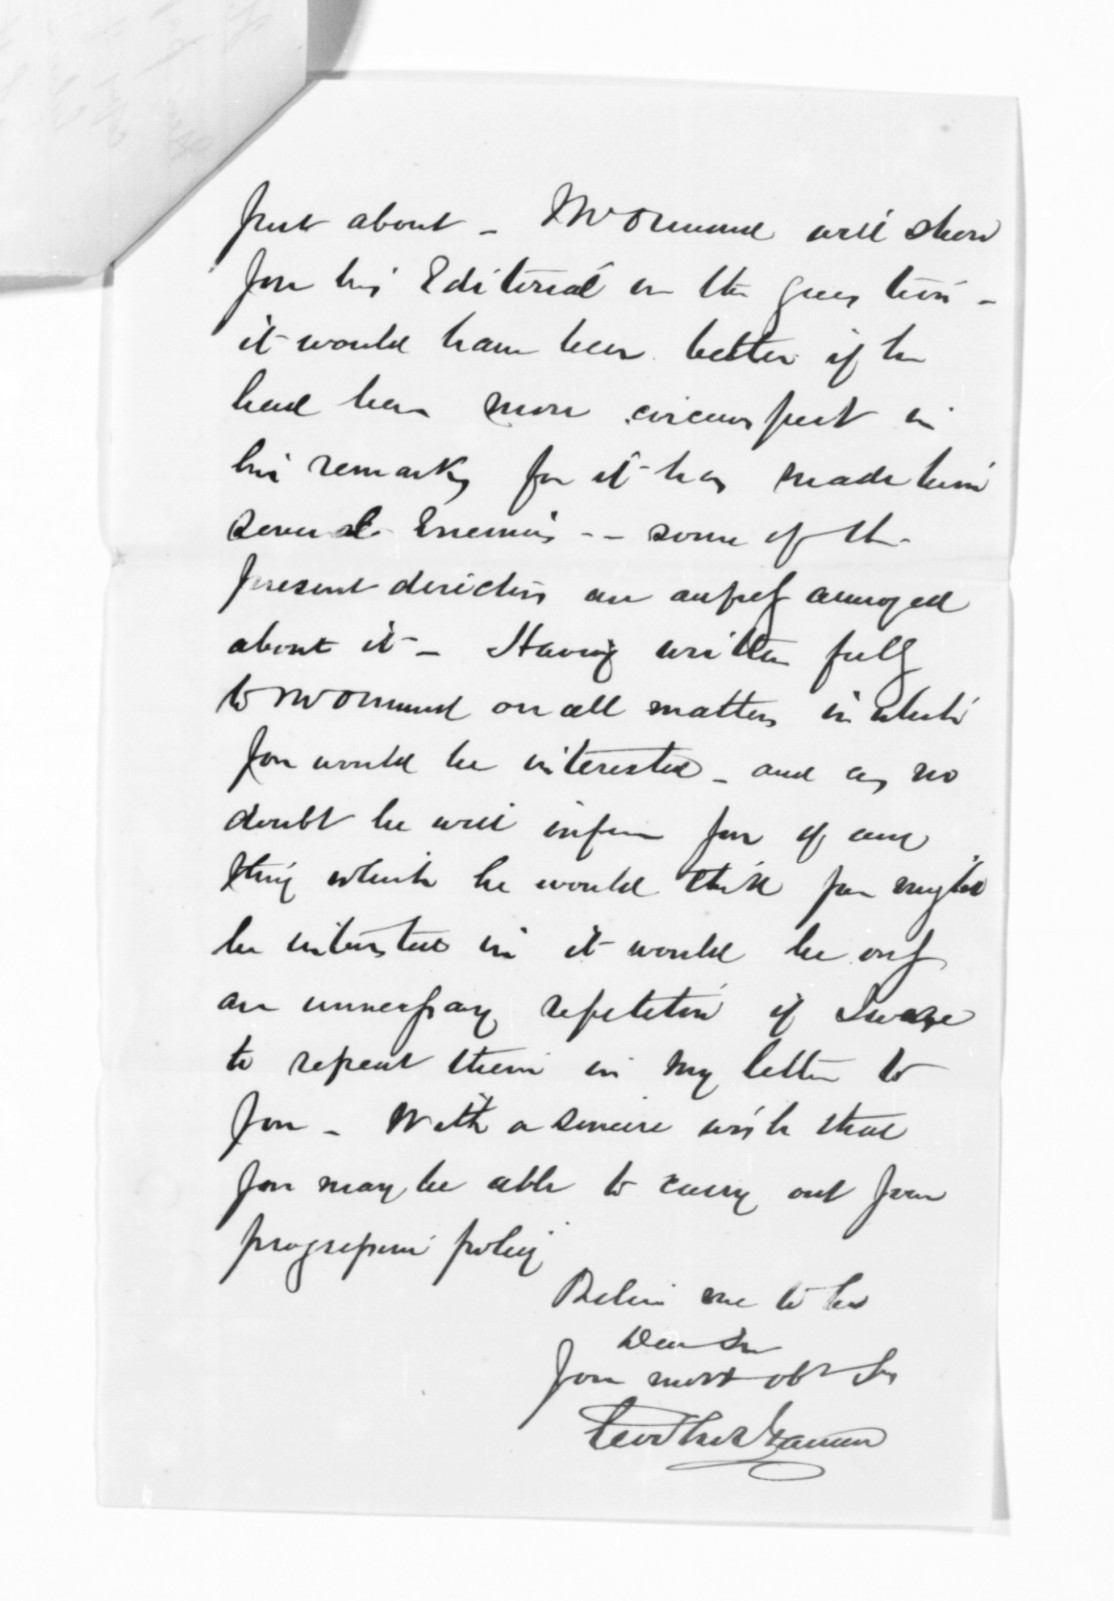 just about - Mr Ormond will show
you his Editorial on the question -
it would have been better if he
had been more circumspect in
his remarks for it has made him
several Enemies -- some of the
present directors are awfully annoyed
about it - Having written fully
to Mr Ormond on all matters in which
you would be interested - and as no
doubt he will inform you of any
thing which he would think you might
be interested in it would be only
an unnecessary repetition if I were
to repeat them in my letter to
you - With a sincere wish that
you may be able to carry out your
progressive policy
Believe me to be
Dear Sir
Your most obt Sr